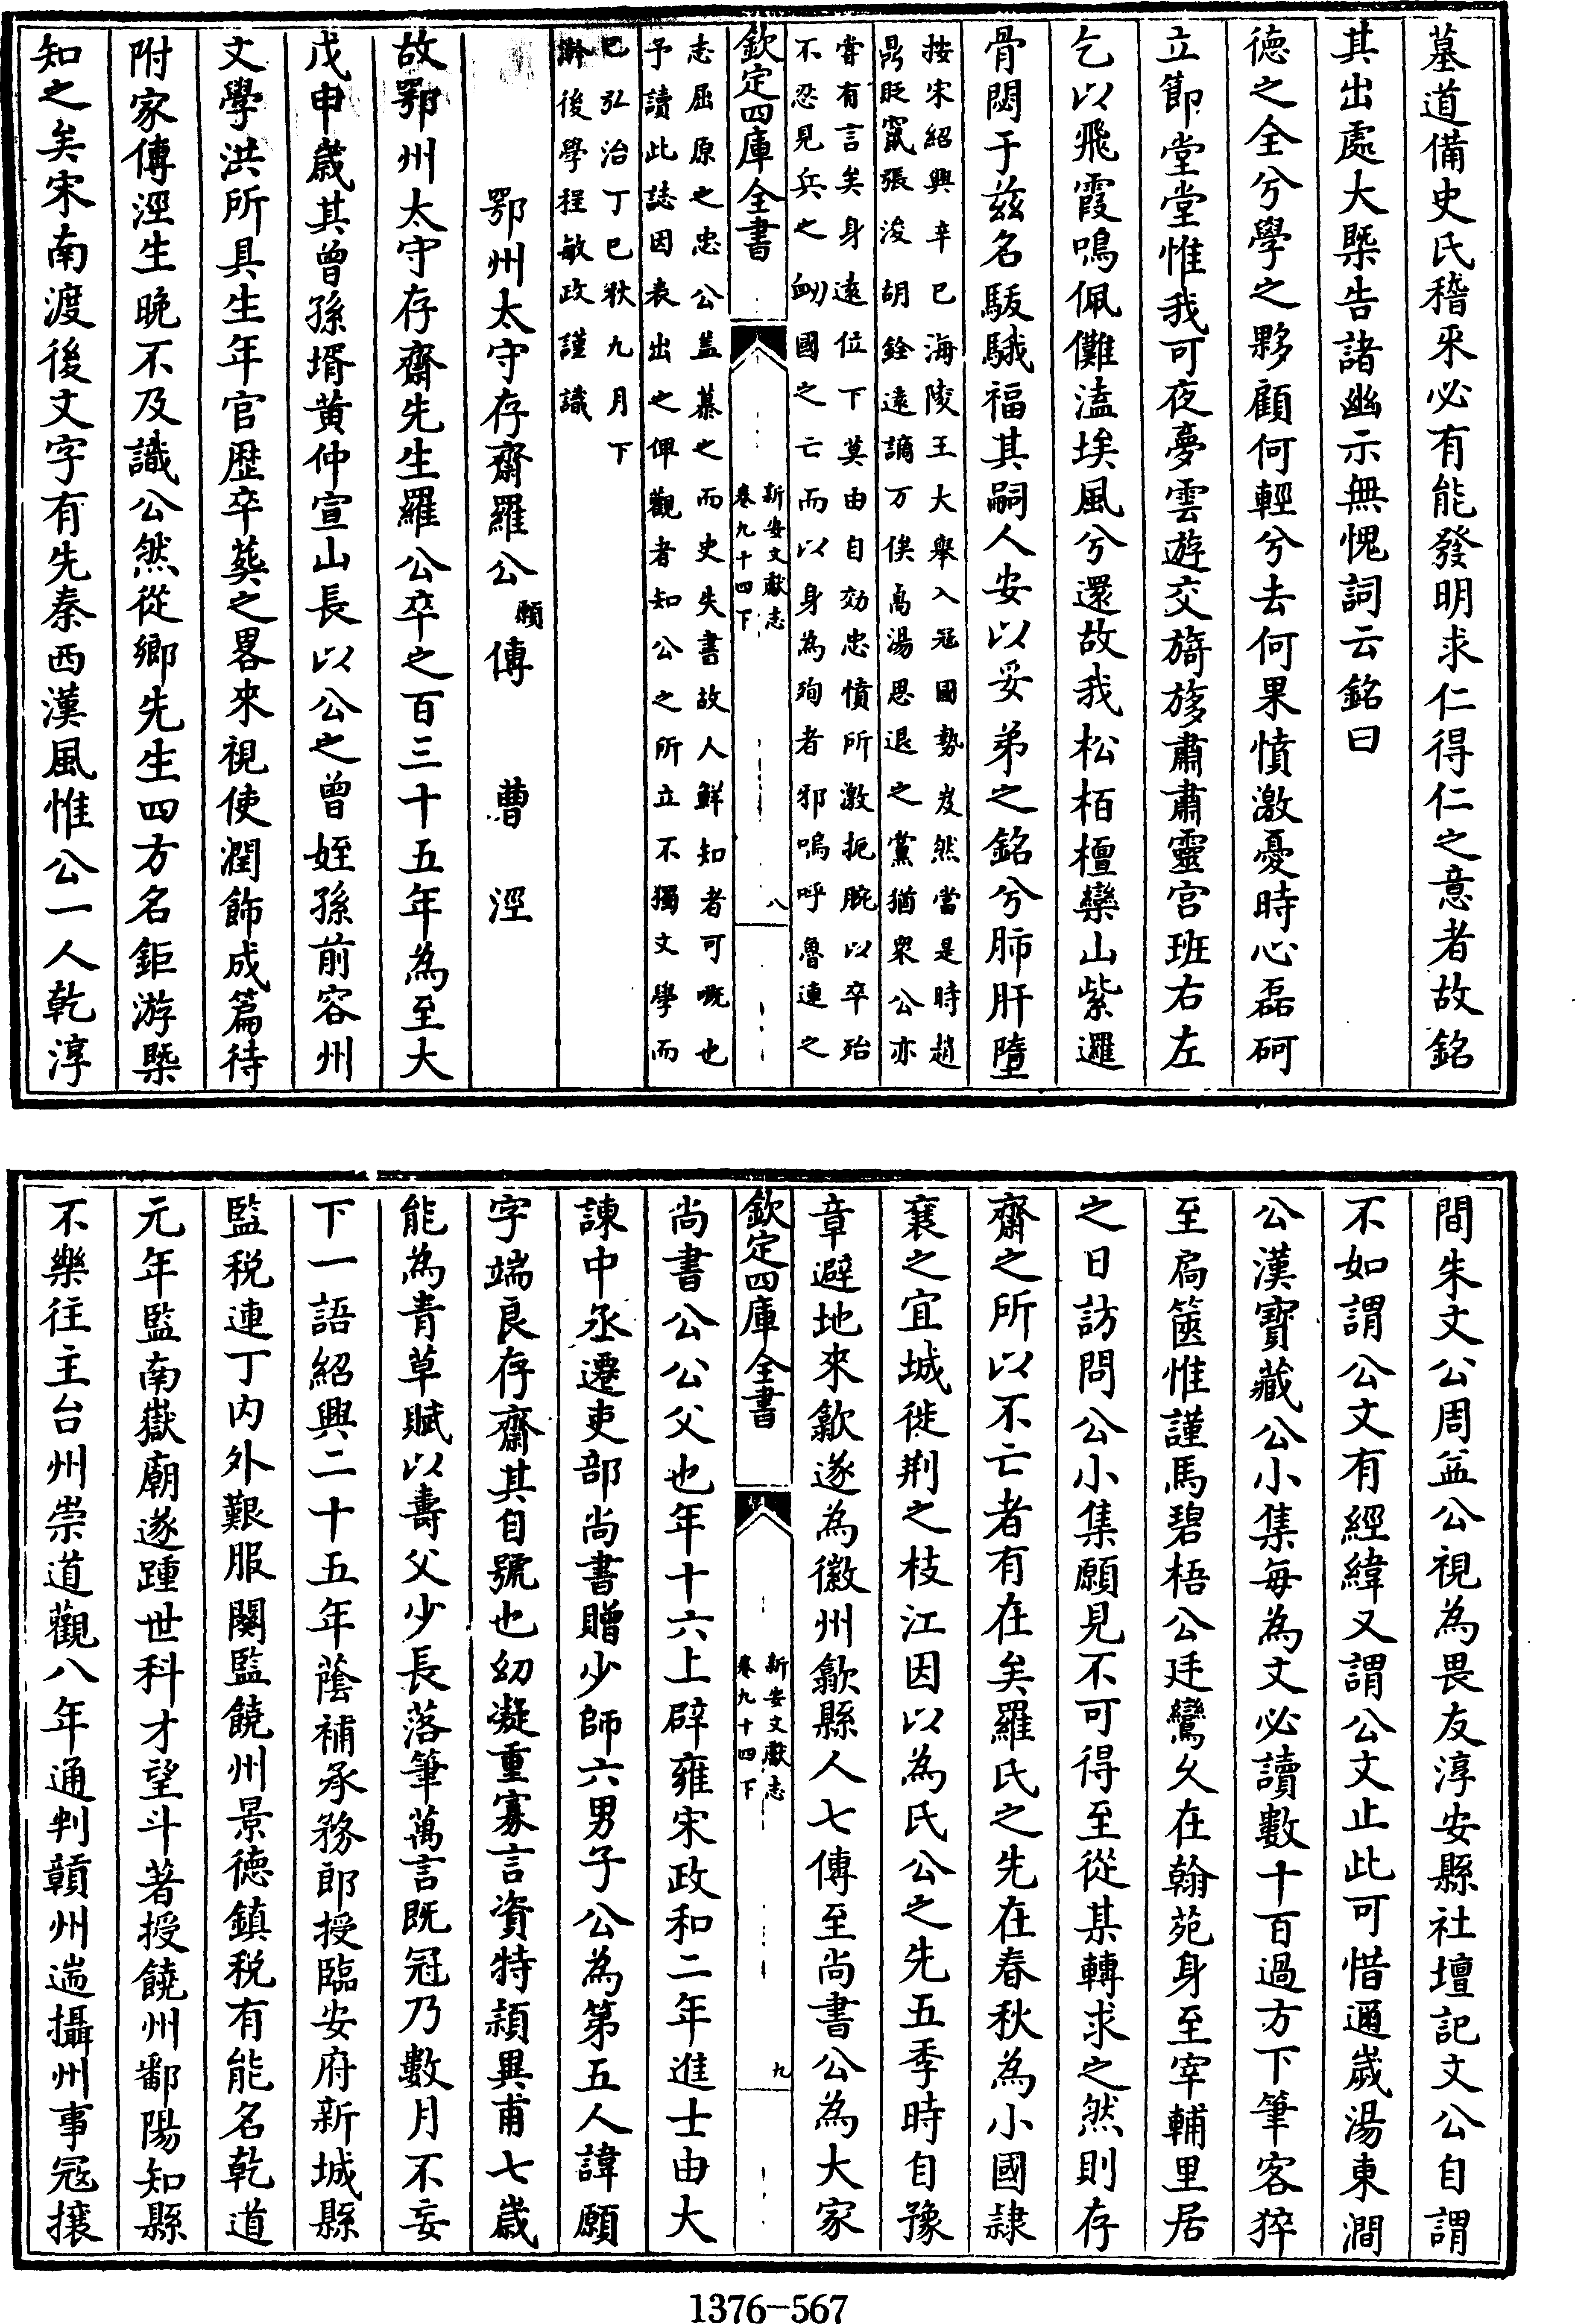 墓道備史氏稽来必有能發明求仁得仁之意者故銘
其出處大槩告諸幽示無愧詞云銘曰
徳之全兮學之夥顧何輕兮去何果憤激憂時心磊砢
立節堂堂惟我可夜夢雲遊交旖旎肅肅靈宫班右左
乞以飛霞鳴佩儺溘埃風兮還故我松栢檀欒山紫邏
骨閟于兹名駊騀福其嗣人安以妥弟之銘兮肺肝墮
按宋紹興辛巳海陵王大舉入冦國勢岌然當是時趙
鼎貶竄張浚胡銓逺謫万俟卨湯思退之黨猶衆公亦
嘗有言矣身逺位下莫由自効忠憤所激扼腕以卒殆
不忍見兵之衂國之亡而以身為殉者邪嗚呼魯連之
欽定四庫全書
新安文獻志
卷九十四下
八
志屈原之忠公盖慕之而史失書故人鮮知者可嘅也
予讀此誌因表出之俾觀者知公之所立不獨文學而
已弘治丁巳秋九月下
澣後學程敏政謹識
鄂州太守存齋羅公願傳 曹涇
故鄂州太守存齋先生羅公卒之百三十五年為至大
戊申歲其曾孫壻黄仲宣山長以公之曾姪孫前容州
文學洪所具生年官歴卒葬之畧來視使潤飾成篇待
附家傳涇生晚不及識公然從鄉先生四方名鉅游槩
知之矣宋南渡後文字有先秦西漢風惟公一人乾淳
間朱文公周益公視為畏友淳安縣社壇記文公自謂
不如謂公文有經緯又謂公文止此可惜通歲湯東澗
公漢寳藏公小集每為文必讀數十百過方下筆客猝
至扃篋惟謹馬碧梧公廷鸞久在翰苑身至宰輔里居
之日訪問公小集願見不可得至從某轉求之然則存
齋之所以不亡者有在矣羅氏之先在春秋為小國隷
襄之宜城徙荆之枝江因以為氏公之先五季時自豫
章避地來歙遂為徽州歙縣人七傳至尚書公為大家
欽定四庫全書
新安文獻志
卷九十四下
九
尚書公公父也年十六上辟雍宋政和二年進士由大
諫中丞遷吏部尚書贈少師六男子公為第五人諱願
字端良存齋其自號也幼凝重寡言資特頴異甫七歳
能為青草賦以壽父少長落筆萬言既冠乃數月不妄
下一語紹興二十五年蔭補承務郎授臨安府新城縣
監税連丁内外艱服闋監饒州景德鎮税有能名乾道
元年監南嶽廟遂踵世科才望斗著授饒州鄱陽知縣
不樂往主台州崇道觀八年通判贛州遄攝州事冦攘
1376-567